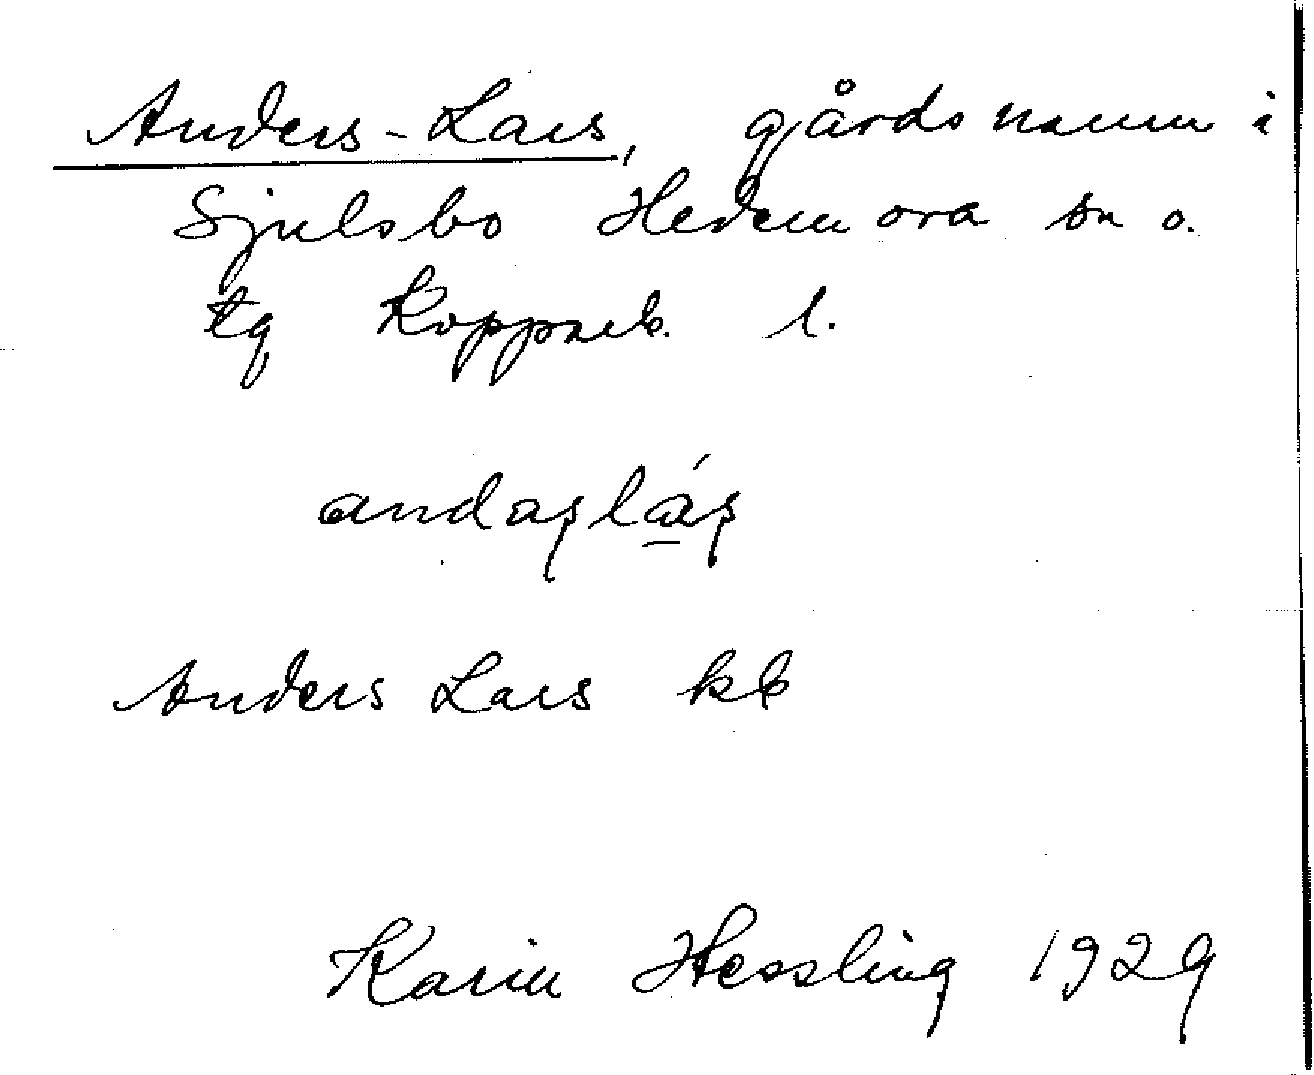 Anders-Lars, gårdsnamn i
Sjulsbo Hedemora sn o.
tg Kopparb. l.
andaʂlá̱ʂ
Anders Lars kb
Karin Hessling 1929